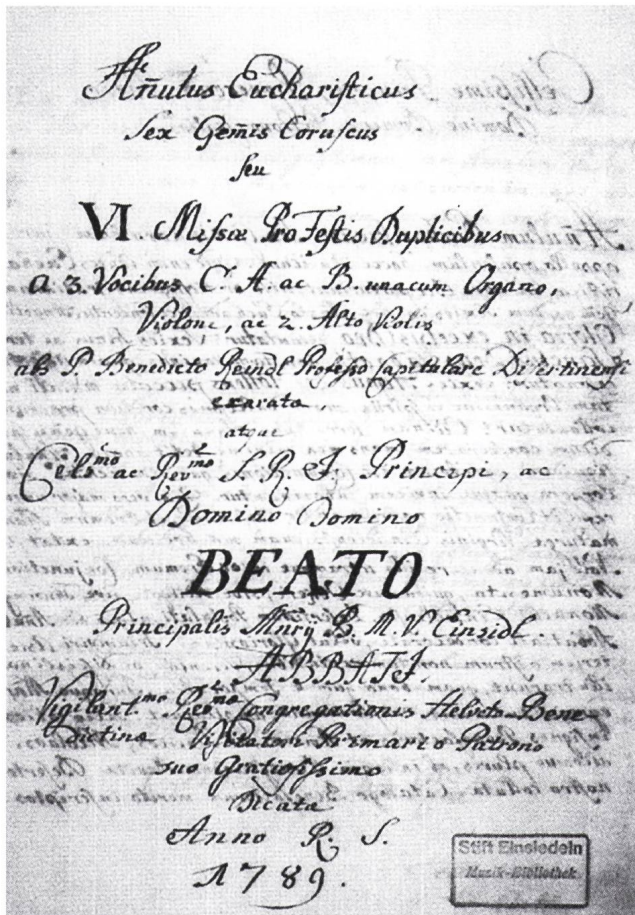 Añulus Eucharisticus
sex Gem̃is Coruscus
seu
VI Missæ Pro Festis Duplicibus
a 3. Vocibus C. A. ac B. unacum Organo,
Violone, ac 2. Alto Violis
abs P. Benedicto Reindl Professo Capitulare Disertinensi
exarata
atque
Cels.mo ac Rev.mo S. R. I. Principi, ac
Domino Domino
BEATO
Principalis Mnrij B. M. V. Einsidl.
ABBATI.
Vigilant.mo Congregationis Helveto Bene
dictinæ Visitatori Primario Patrono
suo Gratiosissimo
Dicata
Anno R. S.
1789.
Stift Einsiedeln
Musik-Bibliothek